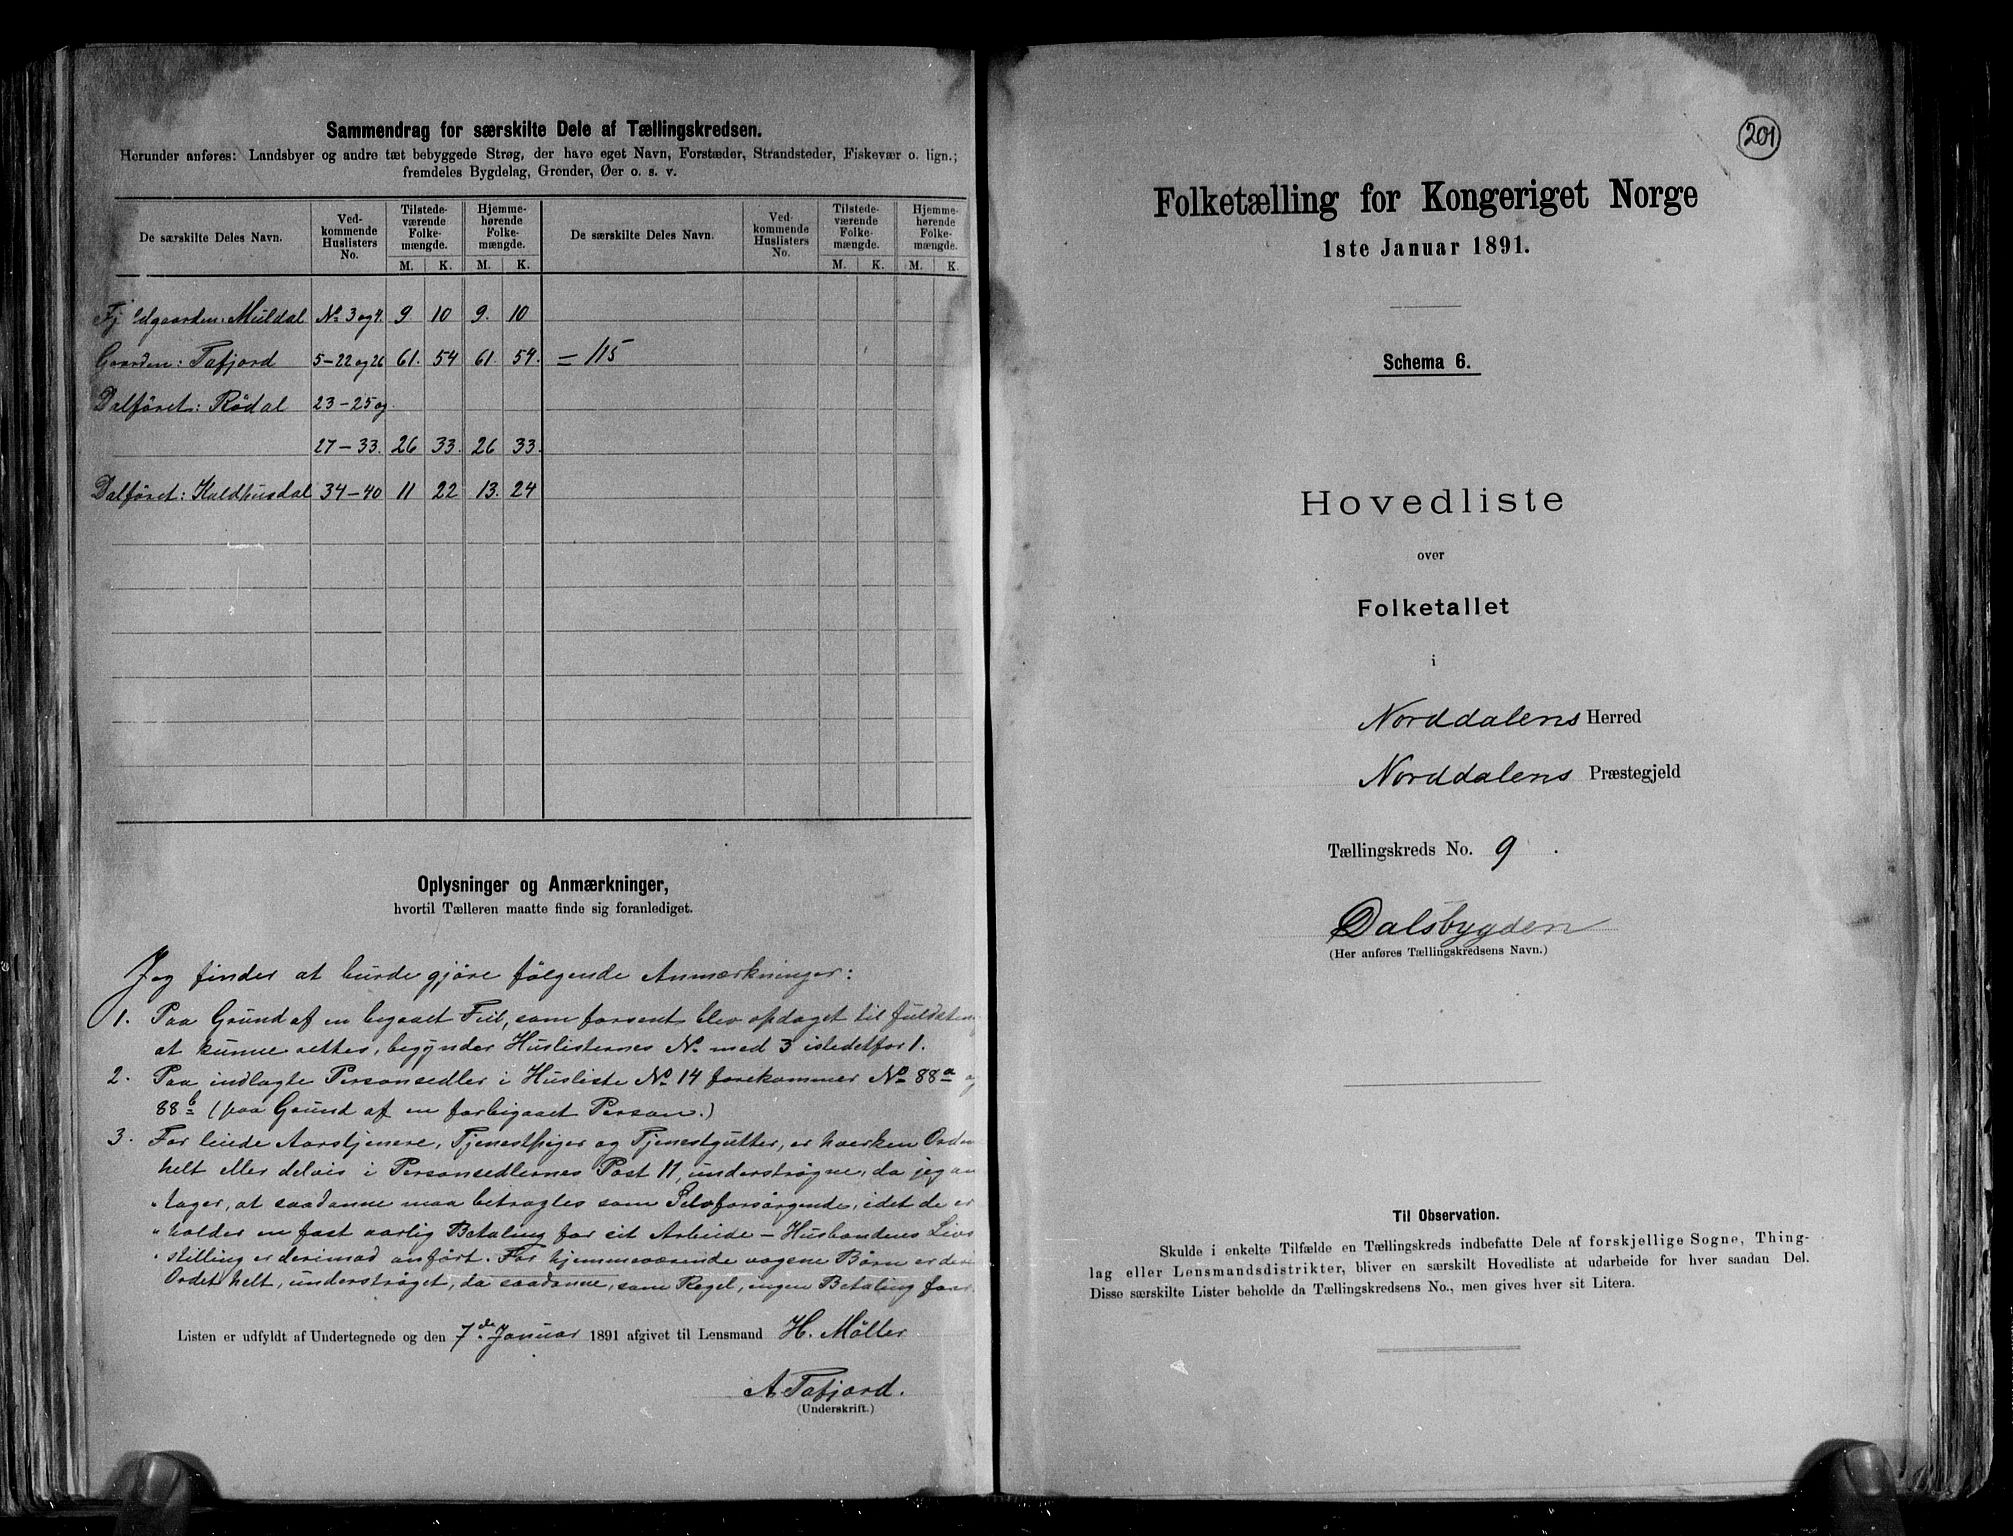 Sammendrag for særskilte Dele af Tællingskredsen.
Herunder anføres: Landsbyer og andre tæt bebyggede Strøg, der have eget Navn, Forstæder, Strandsteder, Fiskevær o. lign.;
fremdeles Bygdelag, Grender, Øer o. s. v.
De særskilte Deles Navn.
Ved-
kommende
Huslisters
No.
Tilstede-
værende
Folke-
mængde.
Hjemme-
hørende
Folke-
mængde.
De særskilte Deles Navn.
Ved-
kommende
Huslisters
No.
Tilstede-
værende
Folke-
mængde.
Hjemme-
hørende
Folke-
mængde.
M. K. M. K. M. K. M. K.
Fjeldgaarden: Muldal No 3 og 4. 9 10 9. 10
Gaarden: Tafjord 5-22 og 26 61. 54 61. 54. = 115
Dalføret: Rødal 23-25 og
27-33. 26 33. 26 33.
Dalføret: Kaldhusdal 34-40 11 22 13. 24
Oplysninger og Anmærkninger,
hvortil Tælleren maatte finde sig foranlediget.
Jeg finder at burde gjøre følgende Anmærkninger:
1. Paa Grund af en begaaet Feil, som forsent blev opdaget til fuldstæn
at kunne rettes, begynder Huslisternes No med 3 istedetfor 1.
2. Paa indlagte Personsedler i Husliste No 14 forekommer No 88a og
88b (paa Grund af en forbigaaet Person.)
3. For leiede Aarstjenere, Tjenestpiger og Tjenestgutter, er hverken Ordene
helt eller delvis i Personsedlernes Post 11, understrøgne, da jeg an
" tager, at saadanne maa betragtes som Selvforsørgende, idet de er
" holder en fast aarlig Betaling for sit Arbeide - Husbondens Livs
" stilling er derimod anført. For hjemmeværende voxne Børn er deri
Ordet helt, understrøget, da saadanne, som Regel, ingen Betaling faar.
Listen er udfyldt af Undertegnede og den 7de Januar 1891 afgivet til Lensmand H. Møller
A Tafjord.
(Underskrift.)
201
Folketælling for Kongeriget Norge
1ste Januar 1891.
Schema 6.
Hovedliste
over
Folketallet
i
Norddalens Herred
Norddalens Præstegjeld
Tællingskreds No. 9.
Dalsbygden
(Her anføres Tællingskredsens Navn.)
Til Observation.
Skulde i enkelte Tilfælde en Tællingskreds indbefatte Dele af forskjellige Sogne, Thing-
lag eller Lensmandsdistrikter, bliver en særskilt Hovedliste at udarbeide for hver saadan Del.
Disse særskilte Lister beholde da Tællingskredsens No., men gives hver sit Litera.